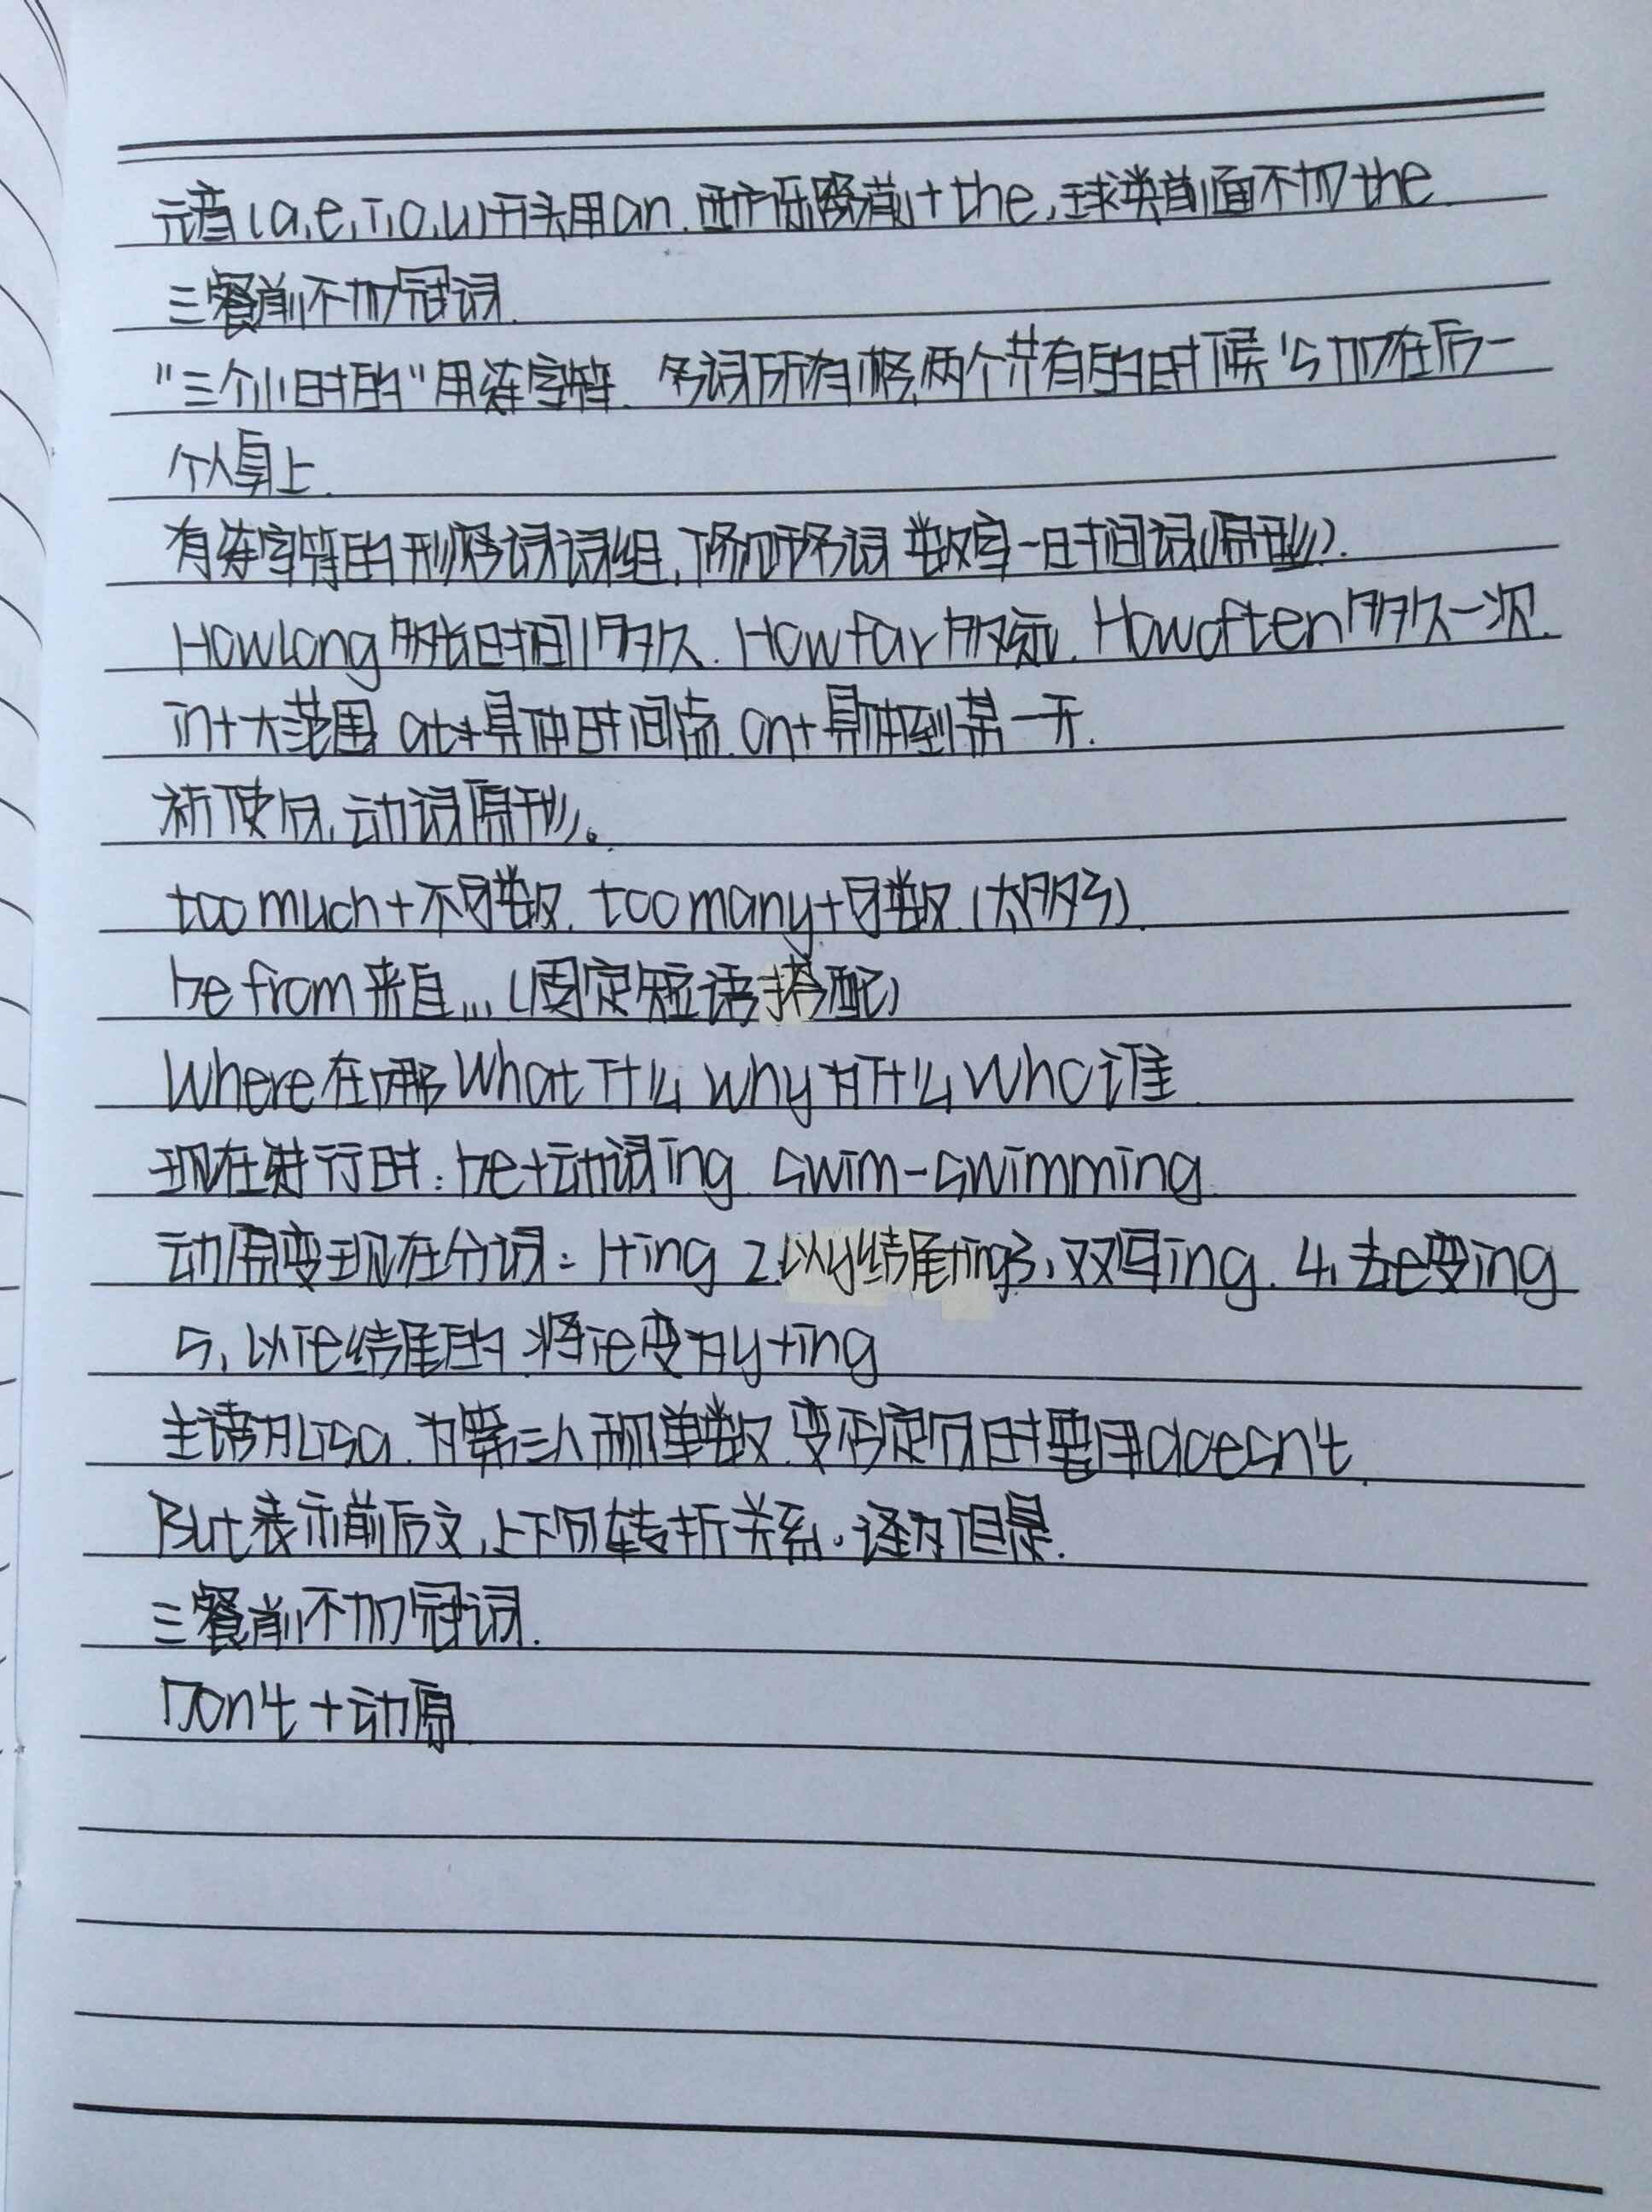 元音(a,e,i,o,u)开头用an.西方乐器前+the,球类前面不加the
三餐前不加冠词.
"三个小时的"用连字符.名词所有格,两个共有的时候's加在后一
个人身上.
有连字符的形容词词组,修师形容词 数字-时间词(原型).
How long 多长时间/多久.How far 多远.How often 多久一次.
in+大范围 at+具体时间点.on+具体到某一天.
祈使句,动词原型。
too much+不可数.too many+可数.(太多)
be from来自...(固定短语搭配)
Where在哪 What什么 why为什么 Who谁
现在进行时:be+动词ing swim-swimming
动原变现在分词:1+ing 2.以y结尾+ing3,双写ing.4,去e变ing
5,以ie结尾的,将ie变为y+ing
主语为Lisa.为第三人称单数.变否定句时要用doesn't.
But表示前后文,上下句转折关系。译为但是.
三餐前不加冠词.
Don't+动原